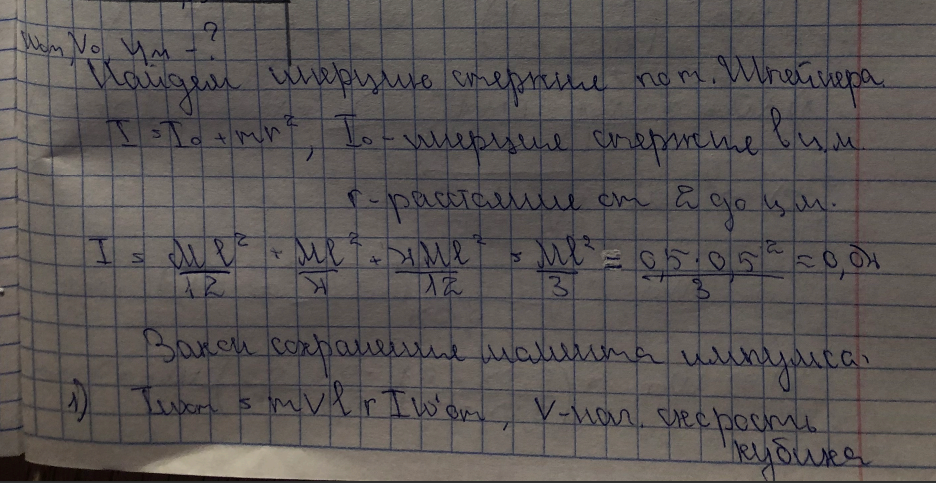 ωст, V₀, ц.м - ?
Найдем инерцию стержня по т. Штейнера
I = I₀ + mr², I₀ - инерция стержня в ц.м.
r - расстояние от до ц.м.
I = Ml²/12 + Ml²/4 + 4Ml²/12 = Ml²/3 = 0,5·0,5²/3 = 0,04
Закон сохранения момента импульса:
1) Iωст = mVl + Iω'ст, V - нач. скорость
кубика